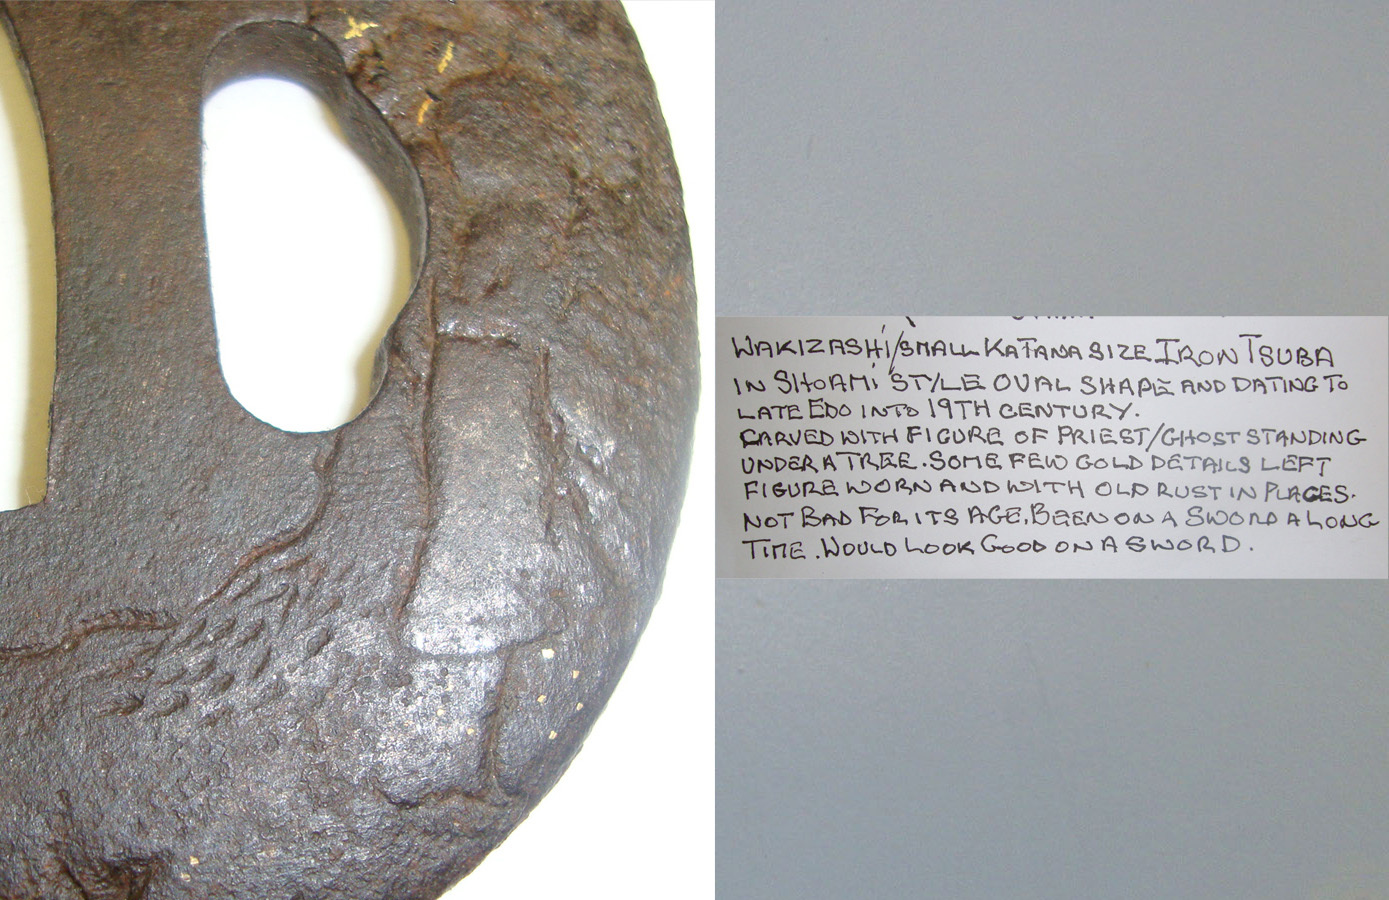 WAKIZASHI/SMALL KATANA SIZE IRON TSUBA
IN SHOAMI STYLE OVAL SHAPE AND DATING TO
LATE EDO INTO 19TH CENTURY.
CARVED WITH FIGURE OF PRIEST/GHOST STANDING
UNDER A TREE. SOME FEW GOLD DETAILS LEFT
FIGURE WORN AND WITH OLD RUST IN PLACES.
NOT BAD FOR ITS AGE. BEEN ON A SWORD A LONG
TIME. WOULD LOOK GOOD ON A SWORD.